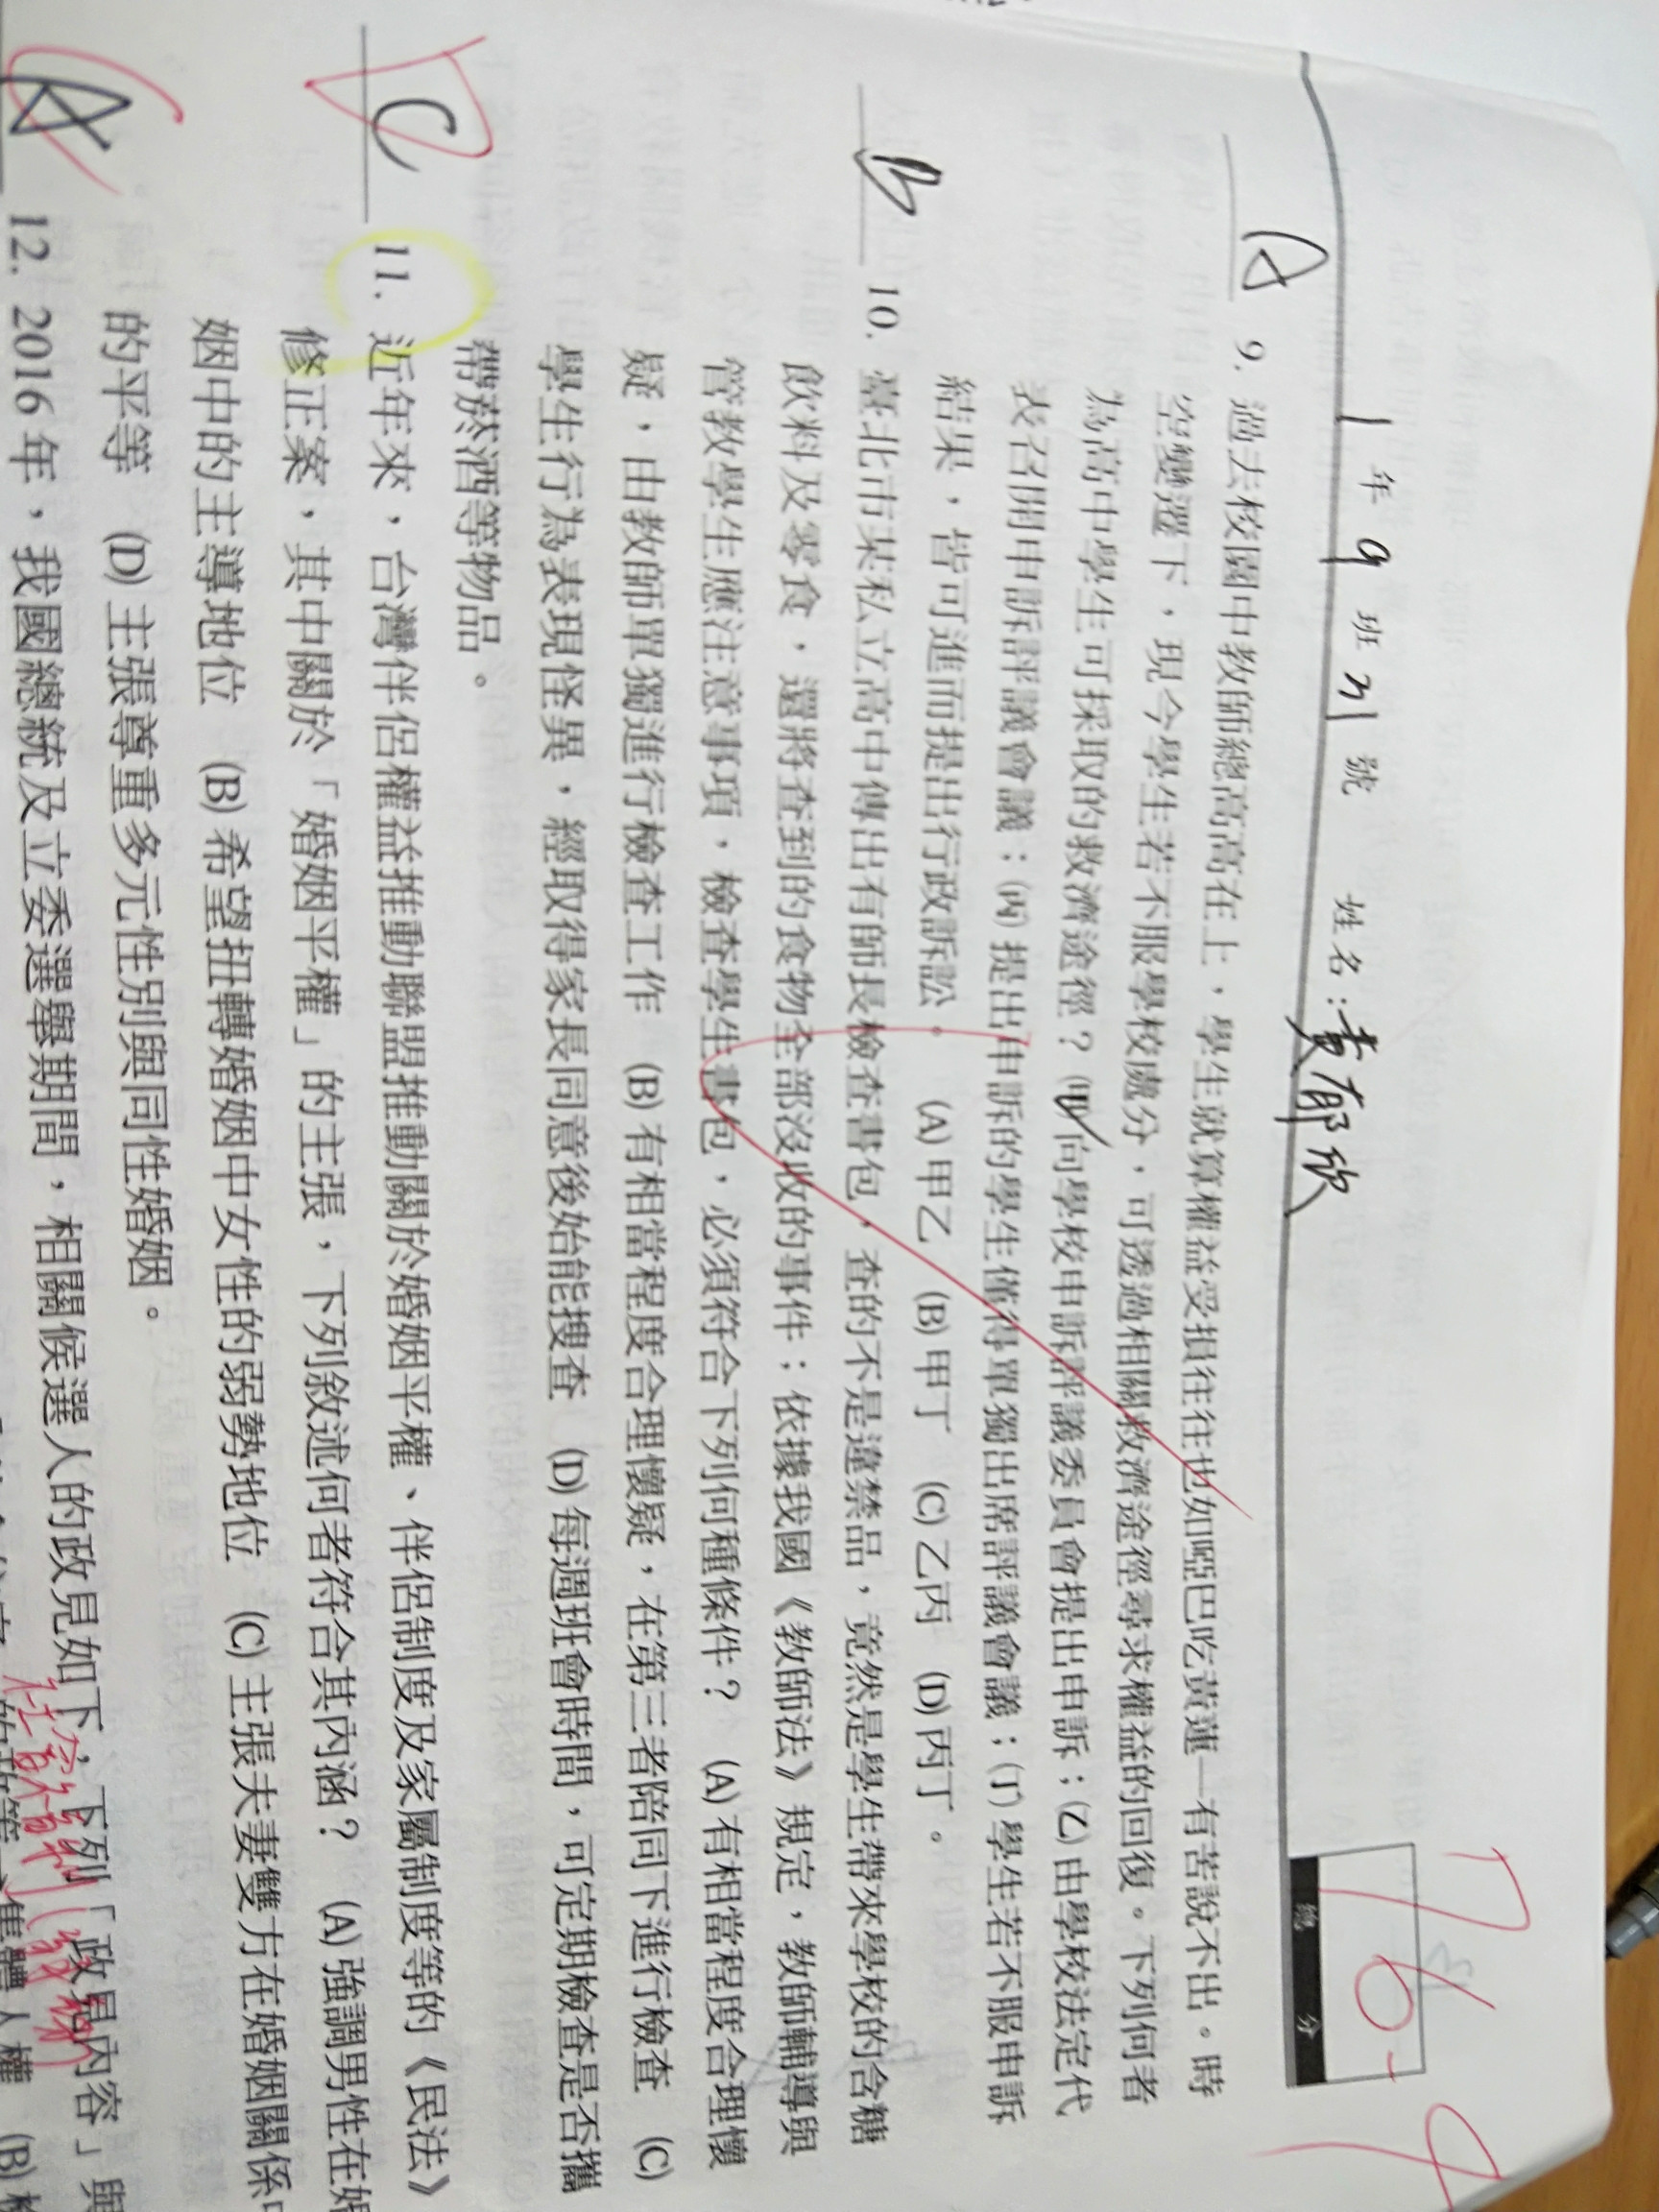 1 年 9 班 21 號 姓名：黃郁欣
76
總分
A 9. 過去校園中教師總高高在上，學生就算權益受損往往也如啞巴吃黃蓮—有苦說不出。時
空變遷下，現今學生若不服學校處分，可透過相關救濟途徑尋求權益的回復。下列何者
為高中學生可採取的救濟途徑？(甲)向學校申訴評議委員會提出申訴；(乙)由學校法定代
表召開申訴評議會議；(丙)提出申訴的學生僅得單獨出席評議會議；(丁)學生若不服申訴
結果，皆可進而提出行政訴訟。 (A)甲乙 (B)甲丁 (C)乙丙 (D)丙丁。
B 10. 臺北市某私立高中傳出有師長檢查書包，查的不是違禁品，竟然是學生帶來學校的含糖
飲料及零食，還將查到的食物全部沒收的事件；依據我國《教師法》規定，教師輔導與
管教學生應注意事項，檢查學生書包，必須符合下列何種條件？ (A)有相當程度合理懷
疑，由教師單獨進行檢查工作 (B)有相當程度合理懷疑，在第三者陪同下進行檢查 (C)
學生行為表現怪異，經取得家長同意後始能搜查 (D)每週班會時間，可定期檢查是否攜
帶菸酒等物品。
D C 11. 近年來，台灣伴侶權益推動聯盟推動關於婚姻平權、伴侶制度及家屬制度等的《民法》
修正案，其中關於「婚姻平權」的主張，下列敘述何者符合其內涵？ (A)強調男性在婚
姻中的主導地位 (B)希望扭轉婚姻中女性的弱勢地位 (C)主張夫妻雙方在婚姻關係中
的平等 (D)主張尊重多元性別與同性婚姻。
12. 2016年，我國總統及立委選舉期間，相關候選人的政見如下，下列「政見內容」與